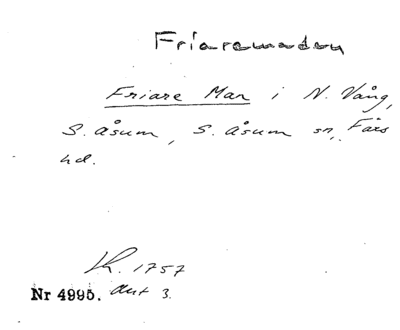 Friaremaden
Friare Mar i N. Vång,
S. Åsum, S. Åsum sn, Färs
hd.
K. 1757
Nr 4995. Akt 3.